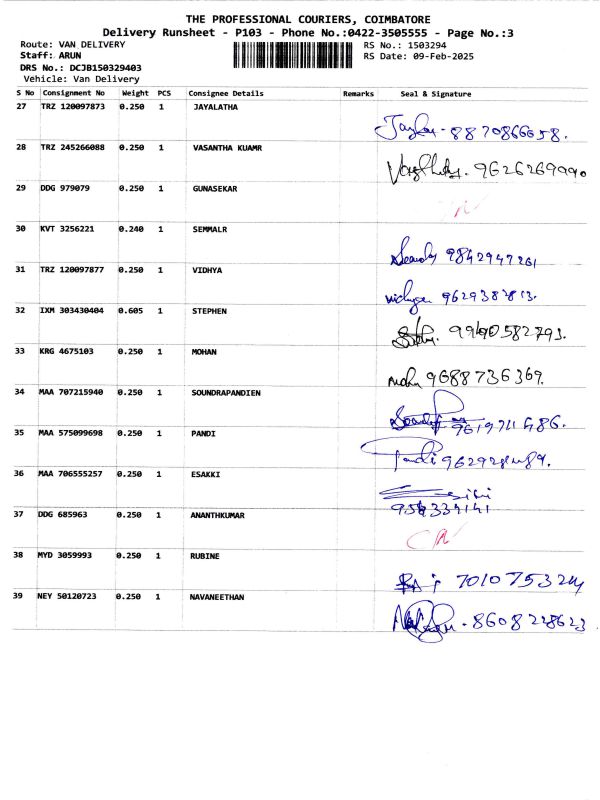 THE PROFESSIONAL COURIERS, COIMBATORE
Delivery Runsheet - P103 - Phone No.:0422-3505555 - Page No.:3
Route: VAN DELIVERY RS No.: 1503294
Staff: ARUN RS Date: 09-Feb-2025
DRS No.: DCJB150329403
Vehicle: Van Delivery
S No Consignment No Weight PCS Consignee Details Remarks Seal & Signature
27 TRZ 120097873 0.250 1 JAYALATHA
8870866658.
28 TRZ 245266088 0.250 1 VASANTHA KUAMR
9626269990
29 DDG 979079 0.250 1 GUNASEKAR
30 KVT 3256221 0.240 1 SEMMALR
9842947261
31 TRZ 120097877 0.250 1 VIDHYA
9629382813.
32 IXM 303430404 0.605 1 STEPHEN
582793.
33 KRG 4675103 0.250 1 MOHAN
9688736369.
34 MAA 707215940 0.250 1 SOUNDRAPANDIEN
35 MAA 575099698 0.250 1 PANDI
Pandi
36 MAA 706555257 0.250 1 ESAKKI
37 DDG 685963 0.250 1 ANANTHKUMAR
38 MYD 3059993 0.250 1 RUBINE
39 NEY 50120723 0.250 1 NAVANEETHAN
8608228623